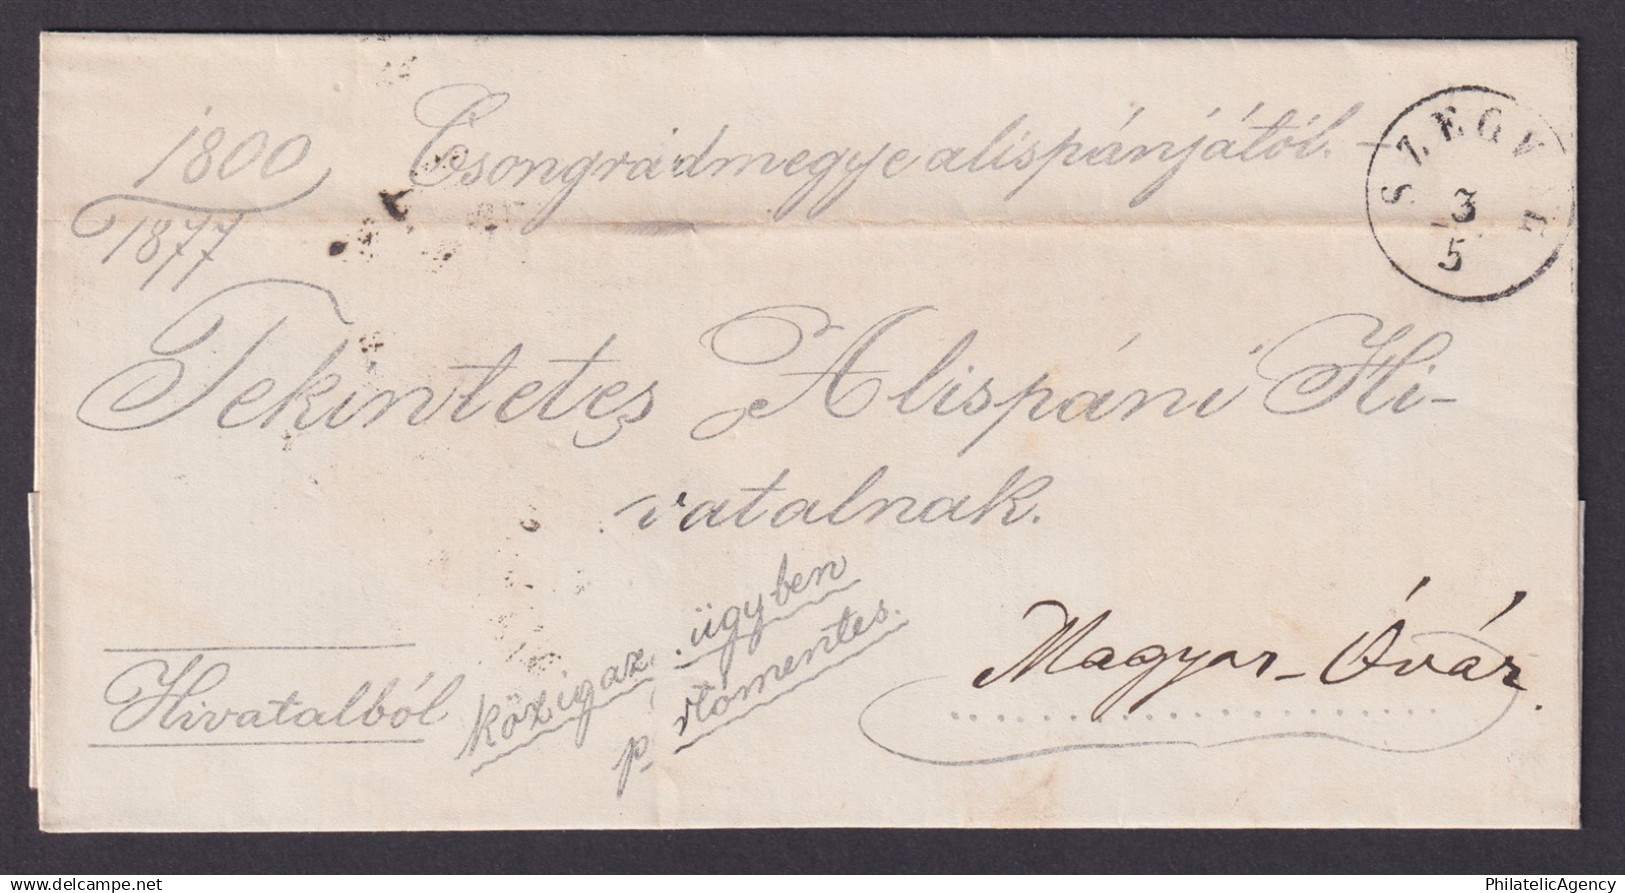 1800
1877
Csongrádmegye alispánjától. –
SZEGVÁR
3
5
Tekintetes Alispáni Hi-
vatalnak.
Hivatalból
közigaz. ügyben
p. rtómentes.
Magyar-Óvár.
delcampe.net
PhilatelicAgency